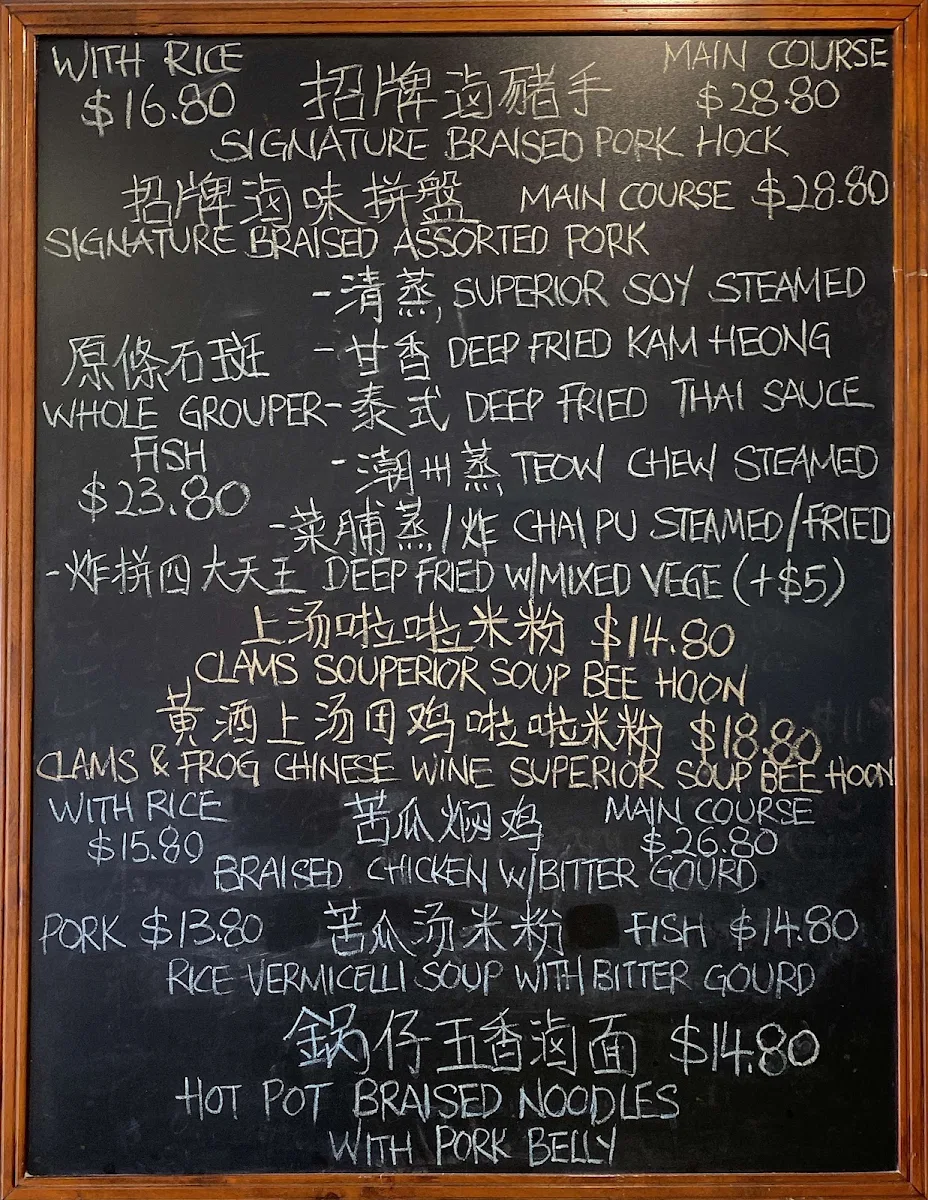 WITH RICE MAIN COURSE
$16.80 招牌滷豬手 $28.80
SIGNATURE BRAISED PORK HOCK
招牌滷味拼盤 MAIN COURSE $28.80
SIGNATURE BRAISED ASSORTED PORK
-清蒸, SUPERIOR SOY STEAMED
原條石斑 -甘香 DEEP FRIED KAM HEONG
WHOLE GROUPER -泰式 DEEP FRIED THAI SAUCE
FISH -潮州蒸, TEOW CHEW STEAMED
$23.80
-菜脯蒸/炸 CHAI PU STEAMED/FRIED
-炸拼四大天王 DEEP FRIED W/MIXED VEGE (+$5)
上汤啦啦米粉 $14.80
CLAMS SOUPERIOR SOUP BEE HOON
黄酒上汤田鸡啦啦米粉 $18.80
CLAMS & FROG CHINESE WINE SUPERIOR SOUP BEE HOON
WITH RICE 苦瓜焖鸡 MAIN COURSE
$15.80 $26.80
BRAISED CHICKEN W/BITTER GOURD
PORK $13.80 苦瓜汤米粉 FISH $14.80
RICE VERMICELLI SOUP WITH BITTER GOURD
鍋仔五香滷面 $14.80
HOT POT BRAISED NOODLES
WITH PORK BELLY